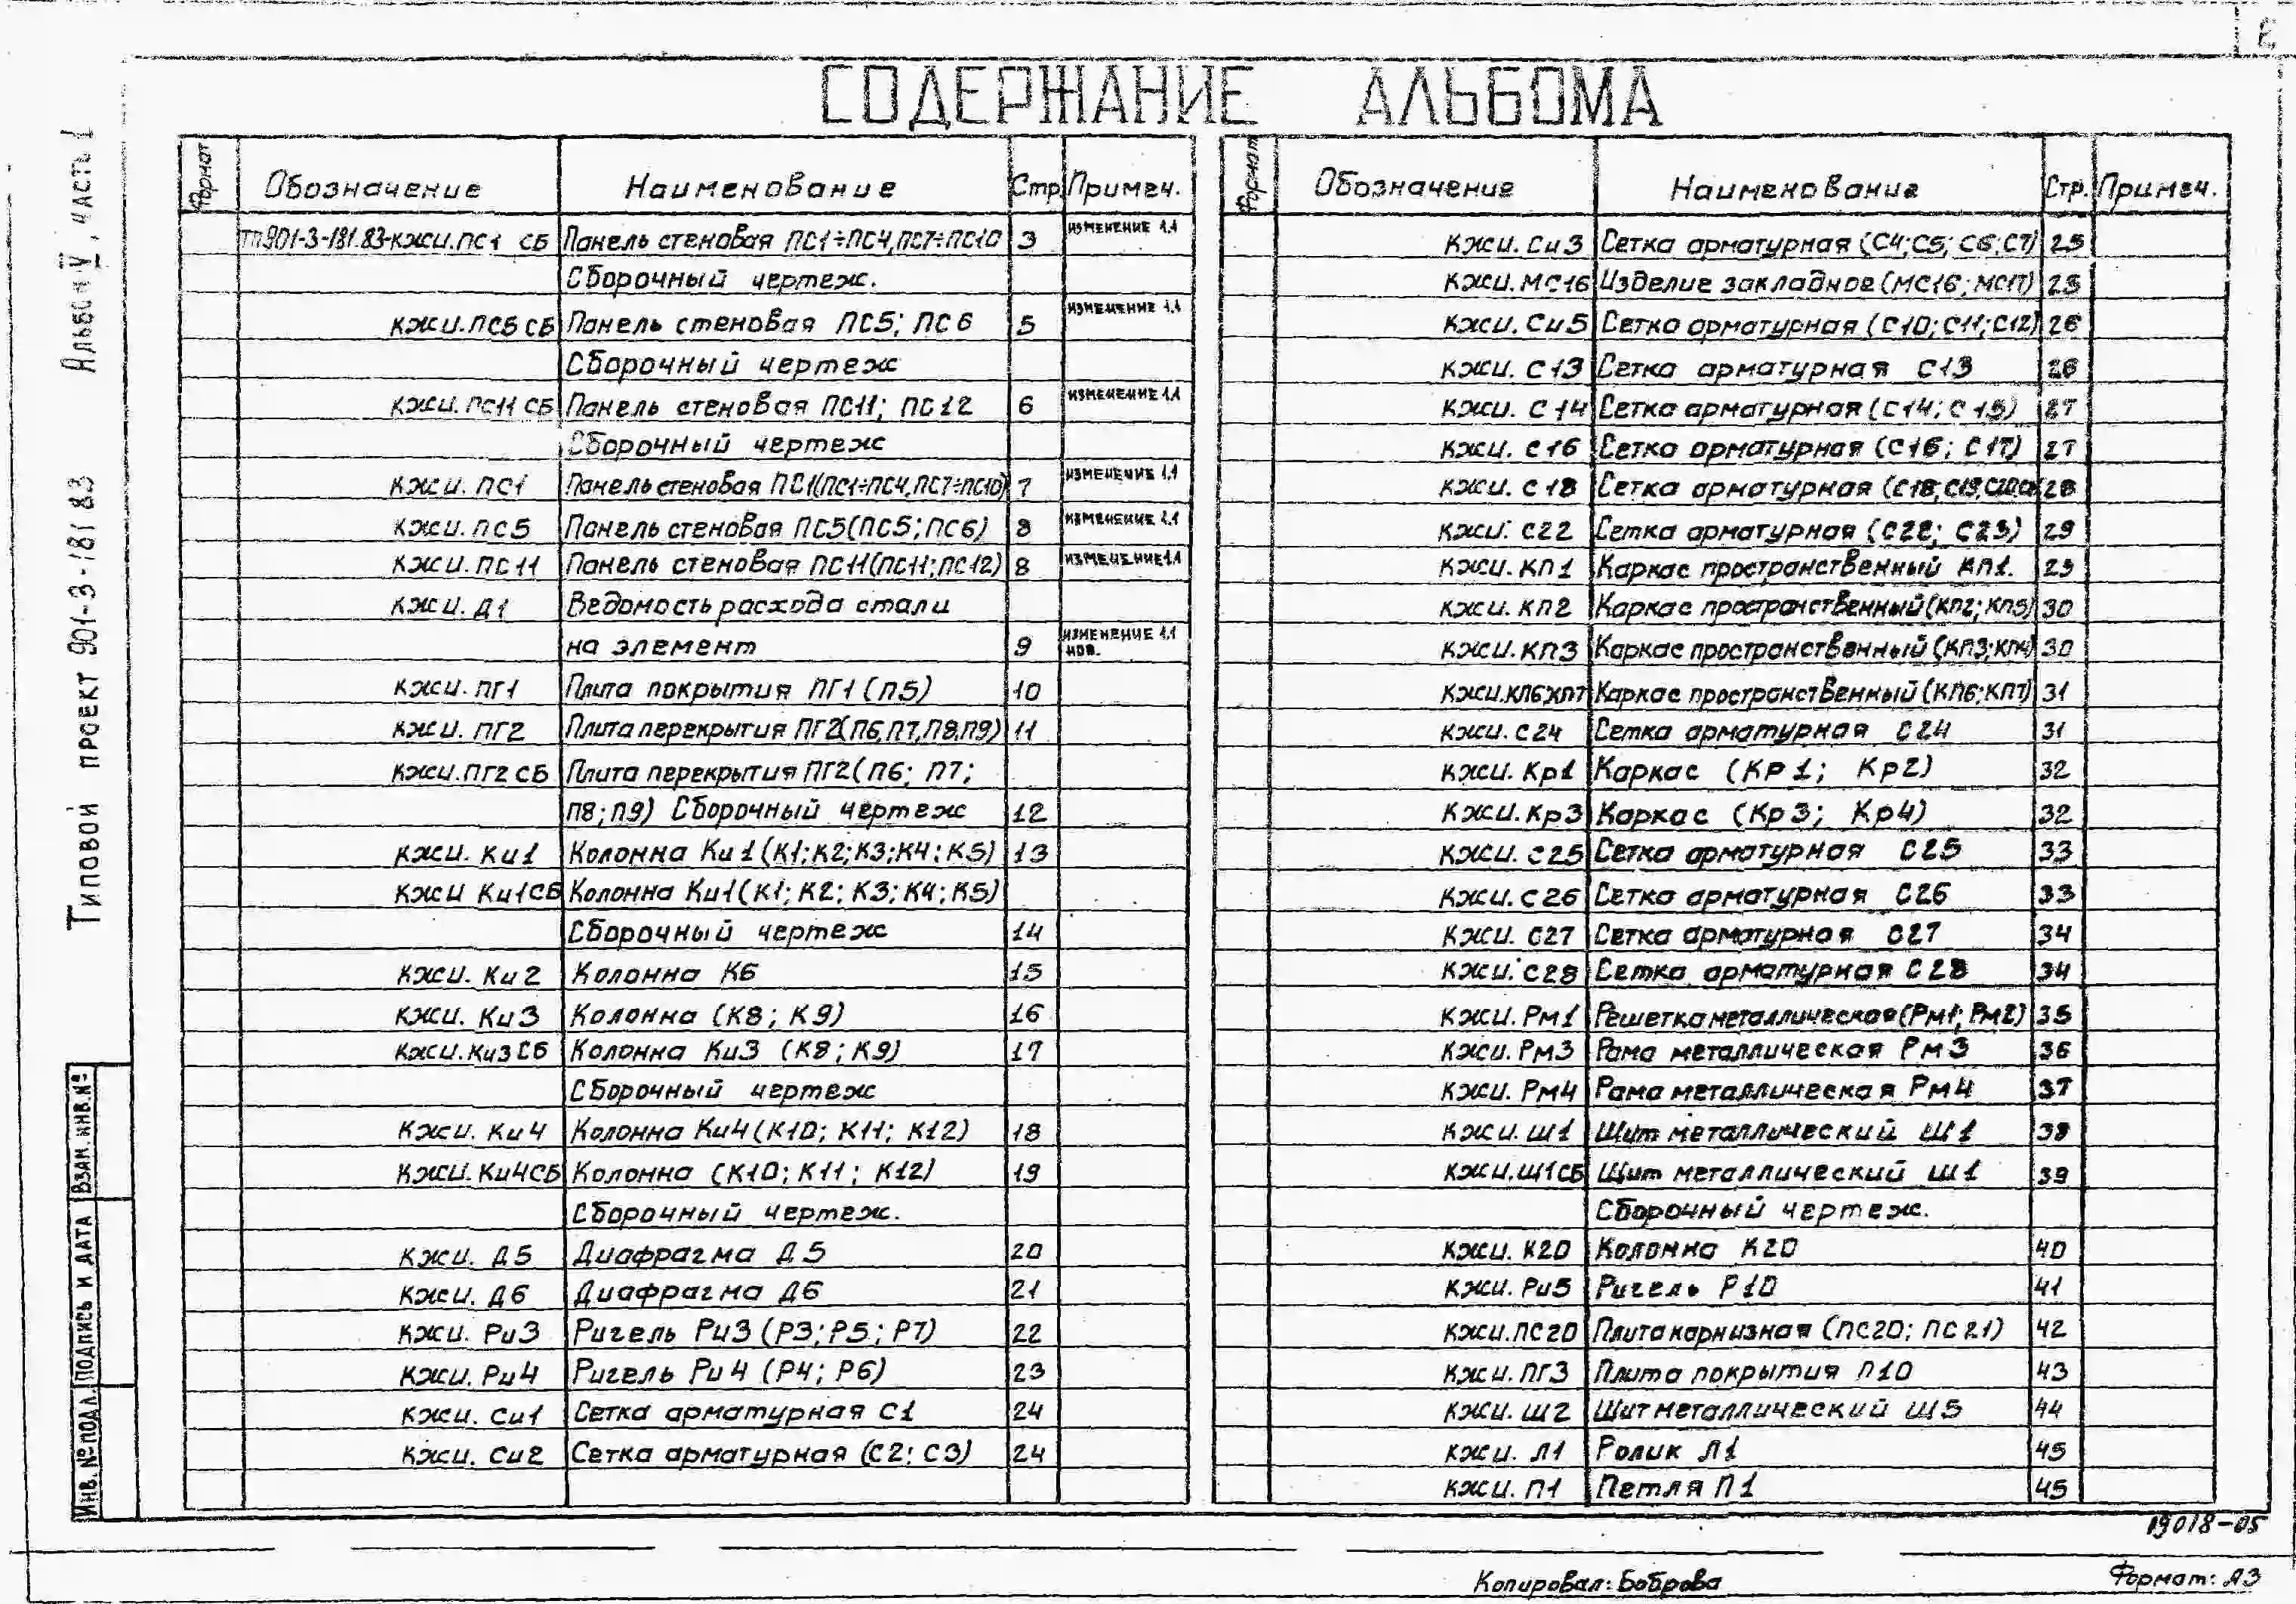 СОДЕРЖАНИЕ АЛЬБОМА
Формат Обозначение Наименование Стр. Примеч.
ТП901-3-181.83-КЖИ.ПС1 СБ Панель стеновая ПС1÷ПС4, ПС7÷ПС10 3 ИЗМЕНЕНИЕ 1.1
Сборочный чертеж.
КЖИ.ПС5 СБ Панель стеновая ПС5; ПС6 5 ИЗМЕНЕНИЕ 1.1
Сборочный чертеж
КЖИ.ПС11 СБ Панель стеновая ПС11; ПС12 6 ИЗМЕНЕНИЕ 1.1
Сборочный чертеж
КЖИ. ПС1 Панель стеновая ПС1(ПС1÷ПС4, ПС7÷ПС10) 7 ИЗМЕНЕНИЕ 1.1
КЖИ. ПС5 Панель стеновая ПС5(ПС5; ПС6) 8 ИЗМЕНЕНИЕ 1.1
КЖИ.ПС11 Панель стеновая ПС11(ПС11; ПС12) 8 ИЗМЕНЕНИЕ 1.1
КЖИ. Д1 Ведомость расхода стали
на элемент 9 ИЗМЕНЕНИЕ 1.1
НОВ.
КЖИ. ПГ1 Плита покрытия ПГ1 (П5) 10
КЖИ. ПГ2 Плита перекрытия ПГ2(П6, П7, П8, П9) 11
КЖИ.ПГ2 СБ Плита перекрытия ПГ2(П6; П7;
П8; П9) Сборочный чертеж 12
КЖИ. Ки1 Колонна Ки1 (К1; К2; К3; К4; К5) 13
КЖИ Ки1СБ Колонна Ки1 (К1; К2; К3; К4; К5)
Сборочный чертеж 14
КЖИ. Ки2 Колонна К6 15
КЖИ. Ки3 Колонна (К8; К9) 16
КЖИ.Ки3СБ Колонна Ки3 (К8; К9) 17
Сборочный чертеж
КЖИ. Ки4 Колонна Ки4 (К10; К11; К12) 18
КЖИ.Ки4СБ Колонна (К10; К11; К12) 19
Сборочный чертеж.
КЖИ. Д5 Диафрагма Д5 20
КЖИ. Д6 Диафрагма Д6 21
КЖИ. Ри3 Ригель Ри3 (Р3; Р5; Р7) 22
КЖИ. Ри4 Ригель Ри4 (Р4; Р6) 23
КЖИ. Си1 Сетка арматурная С1 24
КЖИ. Си2 Сетка арматурная (С2; С3) 24
Формат Обозначение Наименование Стр. Примеч.
КЖИ. Си3 Сетка арматурная (С4; С5; С6; С7) 25
КЖИ.МС16 Изделие закладное (МС16; МС17) 25
КЖИ. Си5 Сетка арматурная (С10; С11; С12) 26
КЖИ. С13 Сетка арматурная С13 26
КЖИ. С14 Сетка арматурная (С14; С15) 27
КЖИ. С16 Сетка арматурная (С16; С17) 27
КЖИ. С18 Сетка арматурная (С18; С19; 28
КЖИ. С22 Сетка арматурная (С22; С23) 29
КЖИ. КП1 Каркас пространственный КП1. 29
КЖИ. КП2 Каркас пространственный (КП2; КП5) 30
КЖИ. КП3 Каркас пространственный (КП3; КП4) 30
КЖИ.КП6;КП7 Каркас пространственный (КП6; КП7) 31
КЖИ. С24 Сетка арматурная С24 31
КЖИ. Кр1 Каркас (КР1; Кр2) 32
КЖИ. Кр3 Каркас (Кр3; Кр4) 32
КЖИ. С25 Сетка арматурная С25 33
КЖИ. С26 Сетка арматурная С26 33
КЖИ. С27 Сетка арматурная С27 34
КЖИ. С28 Сетка арматурная С28 34
КЖИ. Рм1 Решетка металлическая (Рм1; Рм2) 35
КЖИ. Рм3 Рама металлическая Рм3 36
КЖИ. Рм4 Рама металлическая Рм4 37
КЖИ. Щ1 Щит металлический Щ1 38
КЖИ.Щ1СБ Щит металлический Щ1 39
Сборочный чертеж.
КЖИ. К20 Колонна К20 40
КЖИ. Ри5 Ригель Р10 41
КЖИ.ПС20 Плита карнизная (ПС20; ПС21) 42
КЖИ. ПГ3 Плита покрытия П10 43
КЖИ. Щ2 Щит металлический Щ5 44
КЖИ. Л1 Ролик Л1 45
КЖИ. П1 Петля П1 45
19018-05
Копировал: Боброва Формат: А3
Типовой проект 901-3-181 83 Альбом V, часть 1
Инв. № подл. Подпись и дата Взам. инв. №